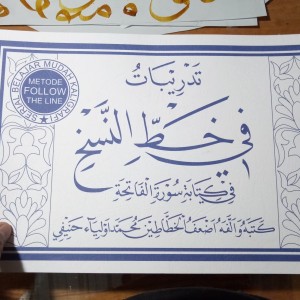 SERIAL BELAJAR MUDAH KALIGRAFI
METODE
FOLLOW
THE LINE
تدريبات
في خط النسخ
في كتابة سورة الفاتحة
كتبه وألفه أضعف الخطاطين محمد أولياء حنيفي